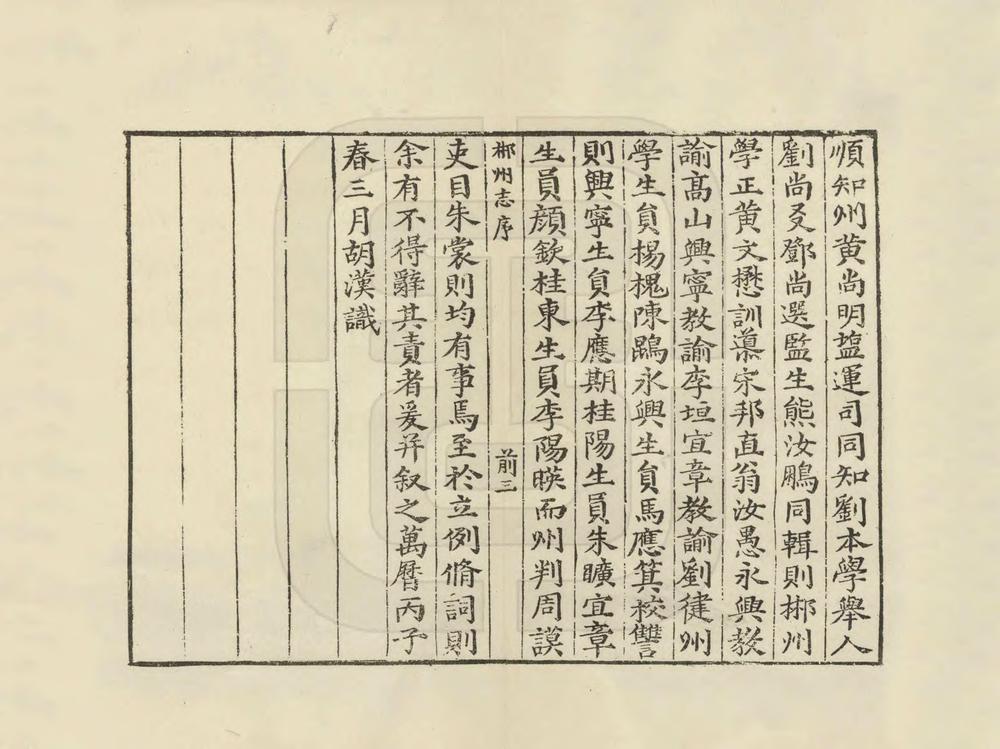 順知州黄尚明塩運司同知劉本學舉人
劉尚爻鄧尚選監生熊汝鵰同輯則郴州
學正黄文懋訓導宋邦直翁汝愚永興教
諭髙山興寧教諭李垣宜章教諭劉徤州
學生員楊槐陳鷗永興生員馬應箕校讐
則興寧生員李應期桂陽生員朱曠宜章
生員顔欽桂東生員李陽暎而州判周謨
郴州志序
前三
吏目朱裳則均有事焉至於立例脩詞則
余有不得辭其責者爰并叙之萬曆丙子
春三月胡漢識